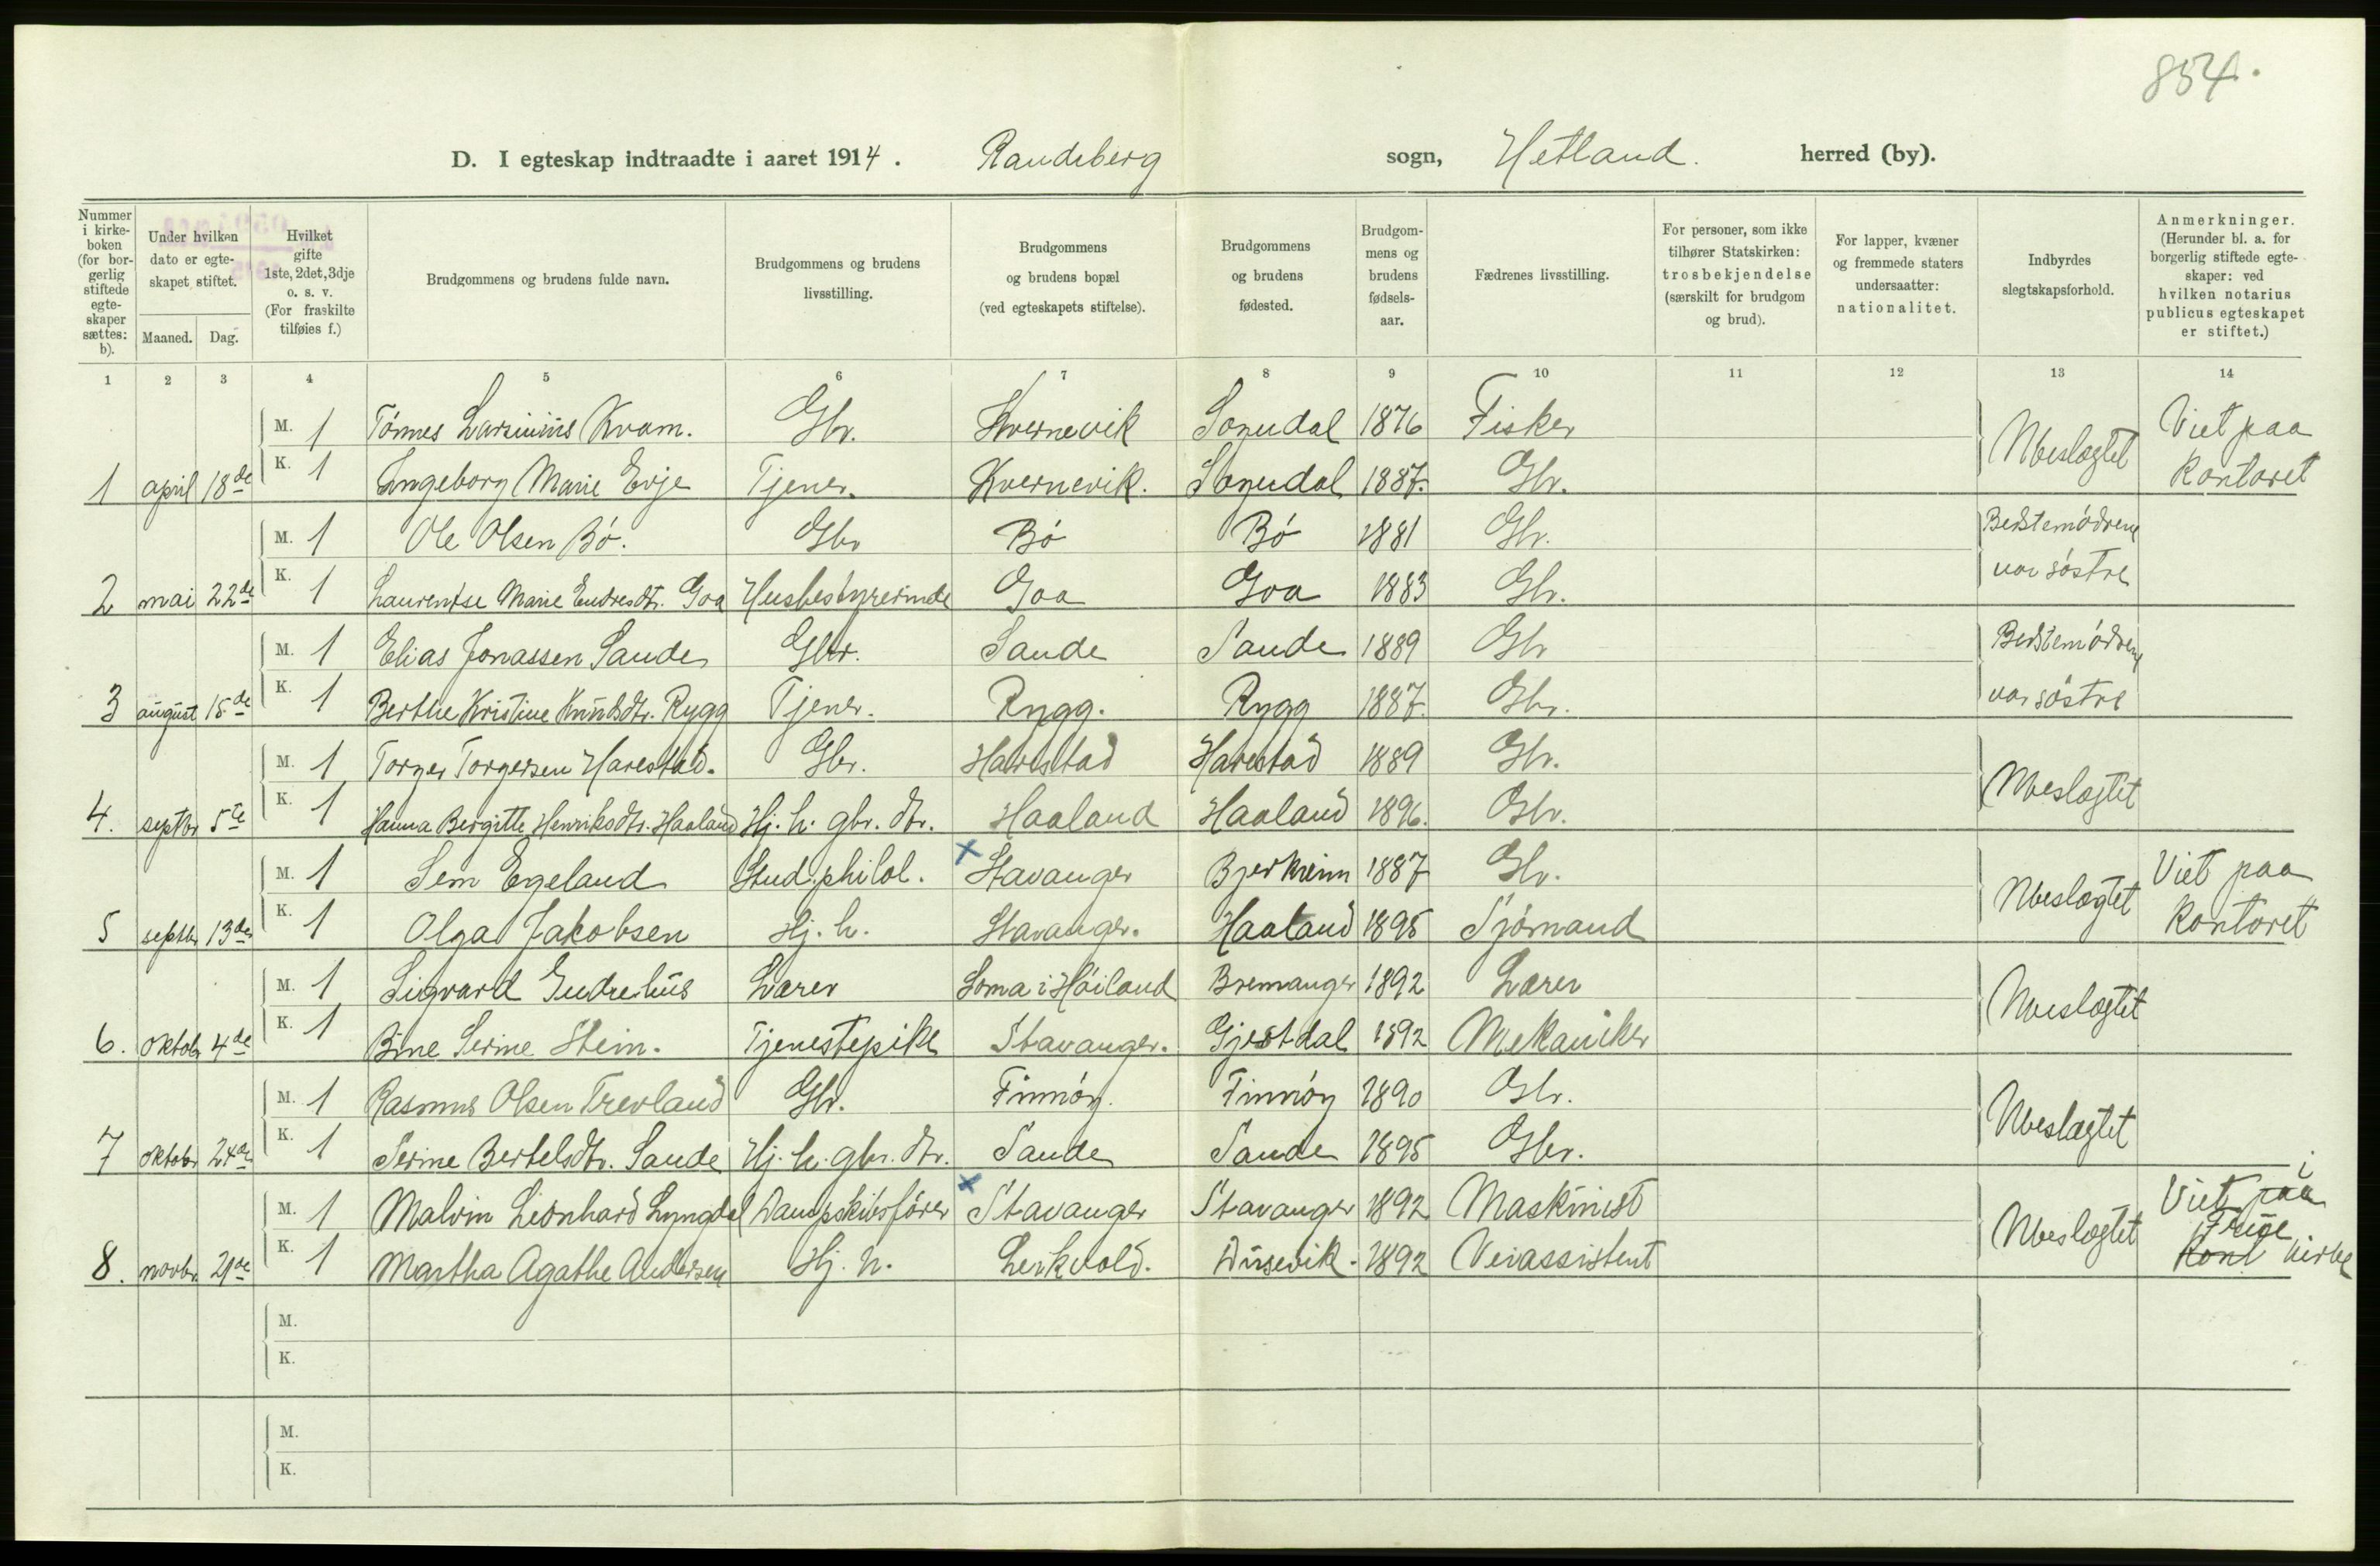 854.
D. I egteskap indtraadte i aaret 1914. Randeberg sogn, Hetland. herred (by).
Nummer i kirkeboken (for borgerlig stiftede egteskaper sættes: b).
Under hvilken dato er egteskapet stiftet.
Maaned. Dag.
Hvilket gifte 1ste, 2det, 3dje o. s. v. (For fraskilte tilføies f.)
Brudgommens og brudens fulde navn.
Brudgommens og brudens livsstilling.
Brudgommens og brudens bopæl (ved egteskapets stiftelse).
Brudgommens og brudens fødested.
Brudgommens og brudens fødsels-aar.
Fædrenes livsstilling.
For personer, som ikke tilhører Statskirken: trosbekjendelse (særskilt for brudgom og brud).
For lapper, kvæner og fremmede staters undersaatter: nationalitet.
Indbyrdes slegtskapsforhold.
Anmerkninger. (Herunder bl. a. for borgerlig stiftede egteskaper: ved hvilken notarius publicus egteskapet er stiftet.)
1 2 3 4 5 6 7 8 9 10 11 12 13 14
M. 1 Tønnes Larsinius Kvam. Gbr. Kvernevik Sogndal 1876 Fisker Ubeslægtet Viet paa
1 april 18de K. 1 Ingeborg Marie Evje Tjener. Kvernevik. Sogndal 1887. Gbr. Kontoret
M. 1 Ole Olsen Bø. Gbr Bø Bø 1881 Gbr. Bedstemødrene
2 mai 22de K. 1 Laurentse Marie Endresdtr. Goa Husbestyrerinde Goa Goa 1883 Gbr. var søstre
M. 1 Elias Jonassen Sande Gbr. Sande Sande 1889 Gbr Bedstemødrene
3 august 15de K. 1 Berthe Kristine Knudsdtr. Rygg Tjener. Rygg. Rygg 1887. Gbr. var søstre
M. 1 Torger Torgersen Harestad. Gbr. Harestad Harestad 1889 Gbr. Ubeslægtet
4. septbr 5te K. 1 Hanna Bergitte Henriksdtr. Haaland Hj. h. gbr. dtr. Haaland Haaland 1896. Gbr.
M. 1 Sem Egeland Stud. philol. x Stavanger Bjerkreim 1887 Gbr. Ubeslægtet Viet paa
5 septbr 13de K. 1 Olga Jakobsen Hj. h. Stavanger. Haaland 1895 Sjømand Kontoret
M. 1 Sigvard Gudrelius Lærer Soma i Høiland Bremanger 1892 Lærer Ubeslægtet
6. oktobr 4de K. 1 Bine Serine Stein. Tjenestepike Stavanger. Gjestdal 1892 Mekaniker
M. 1 Rasmus Olsen Trevland Gbr. Finnøy. Finnøy 1890 Gbr. Ubeslægtet
7 oktobr 24de K. 1 Serine Bertelsdtr. Sande Hj. h. gbr. dtr. Sande Sande 1895 Gbr.
M. 1 Malvin Leonhard Lyngdal Dampskibsfører x Stavanger Stavanger 1892 Maskinist Ubeslægtet Viet paa i
8. novbr. 21de K. 1 Martha Agathe Andersen Hj. h. Leikvold. Dusevik. 1892 Veiassistent Kont Frue kirke
M.
K.
M.
K.